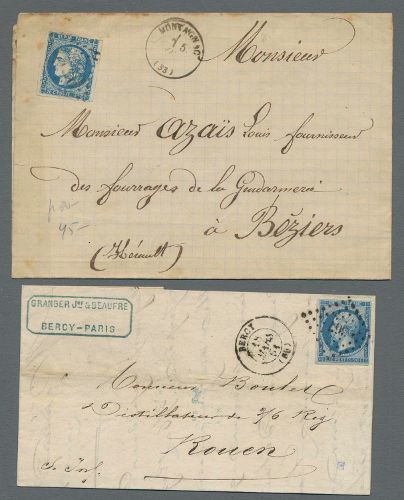 Monsieur
Monsieur Azaïs Louis fournisseur
des fourrages de la Gendarmerie
à Béziers
(Hérault)
45-
GRANGER Jne & BEAUFRE
BERCY-PARIS
BERCY
(60)
Monsieur Boutet
Distillateur de 3/6 Rég
Rouen
S. Inf.